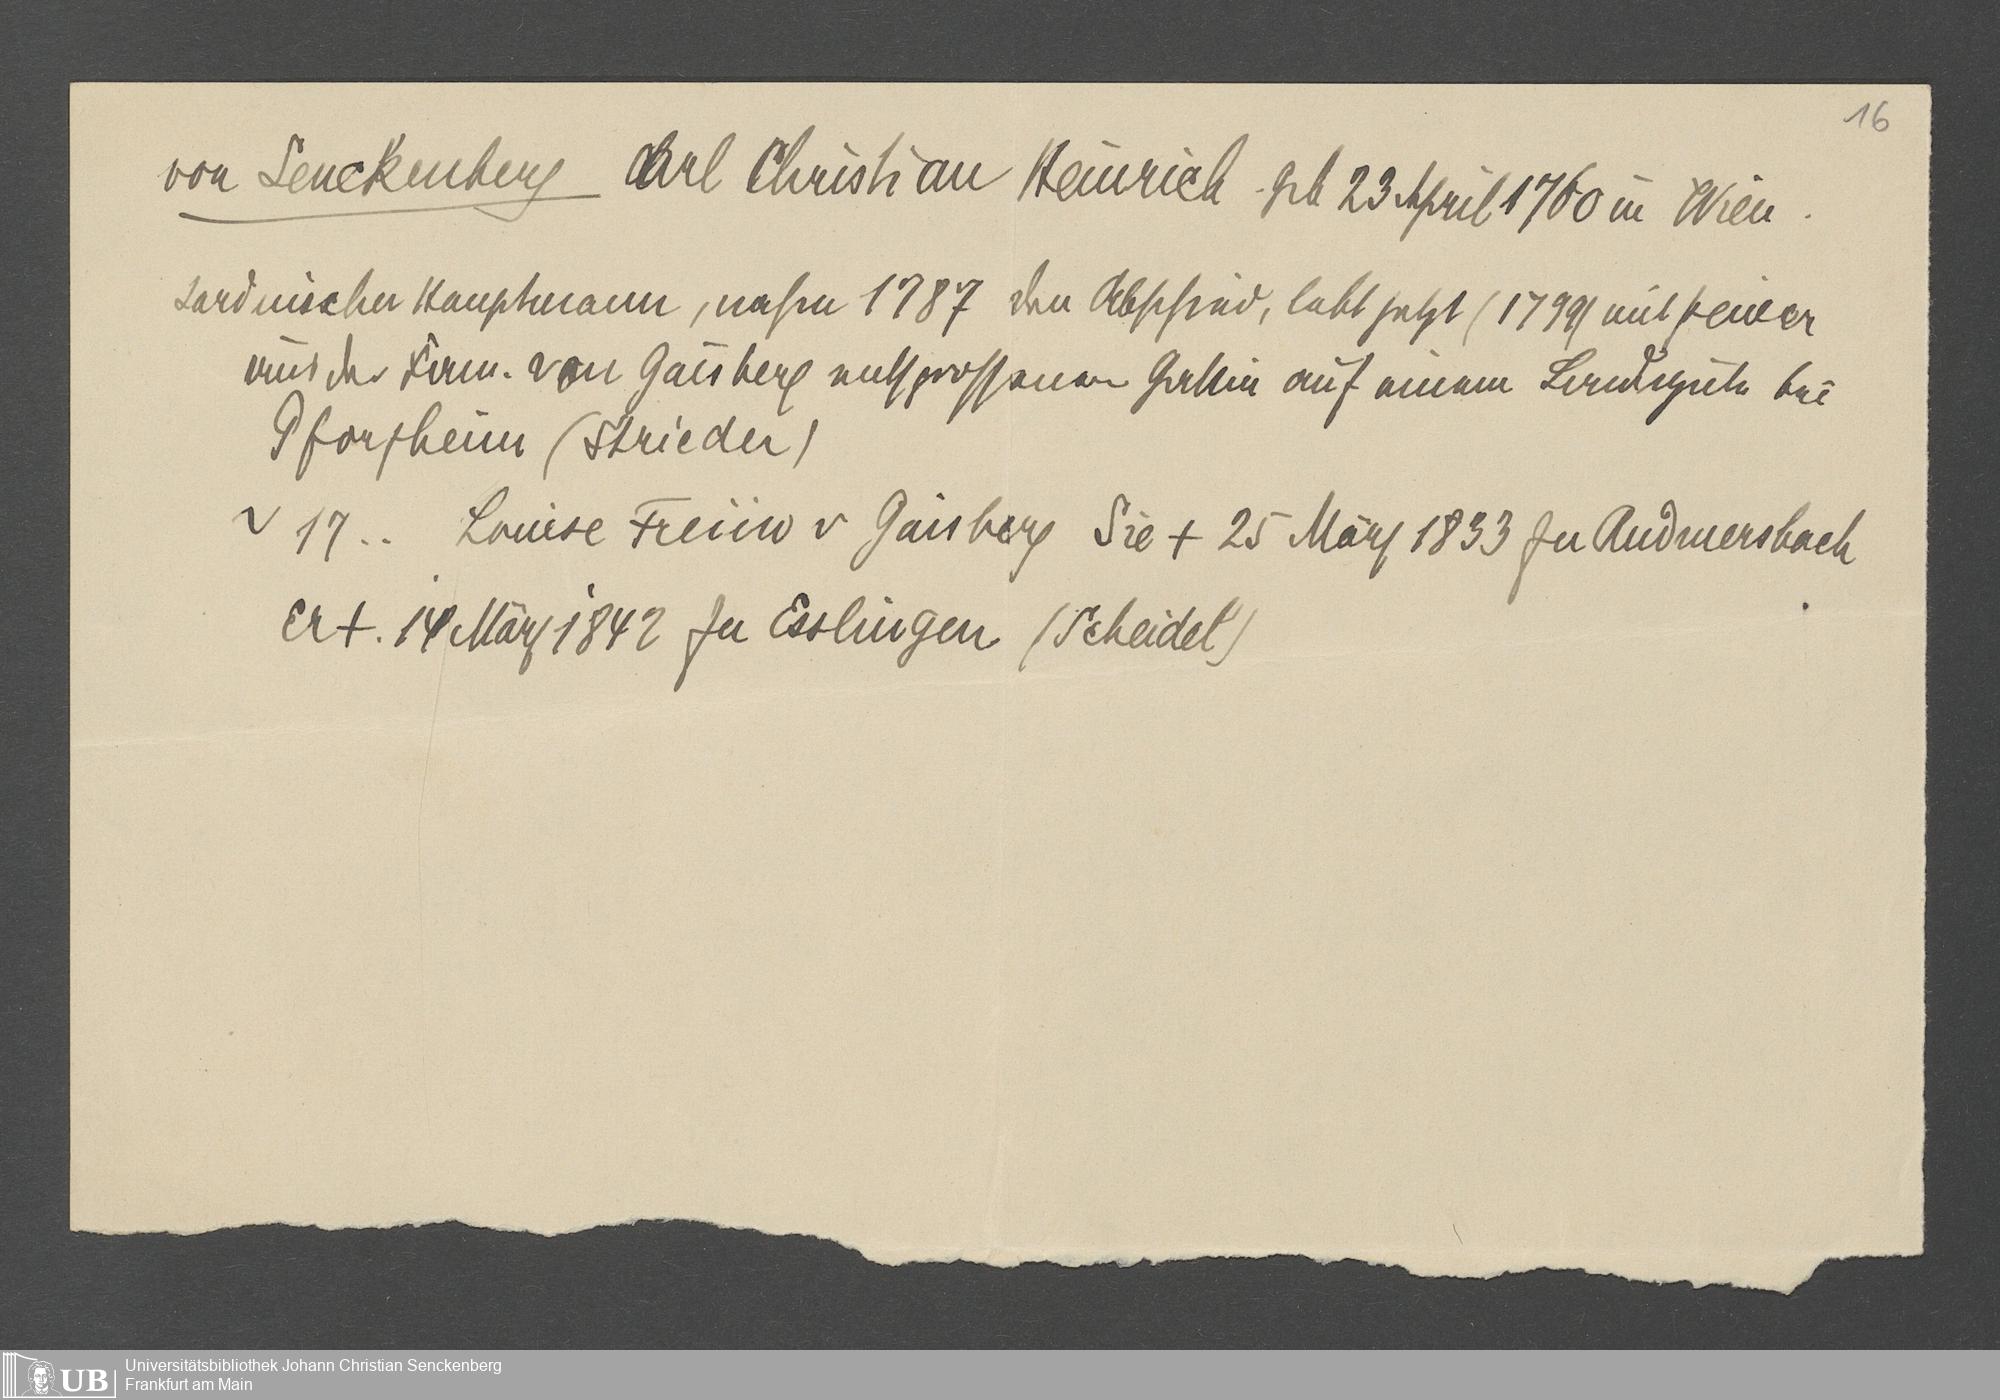 16
von Senckenberg Carl Christian Heinrich geb 23 April 1760 in Wien.
sardinischer Hauptmann, nahm 1787 den Abschied, lebt jetzt (1799) mit seiner
aus der Fam. von Gaisberg entsprossenen Gattin auf einem Landgute bei
Pforzheim (Strieder)
17.. Louise Freiin v Gaisberg Sie + 25 März 1833 zu Rudmersbach
Er +. 14 März 1842 zu Esslingen (Scheidel)
UB
Universitätsbibliothek Johann Christian Senckenberg
Frankfurt am Main